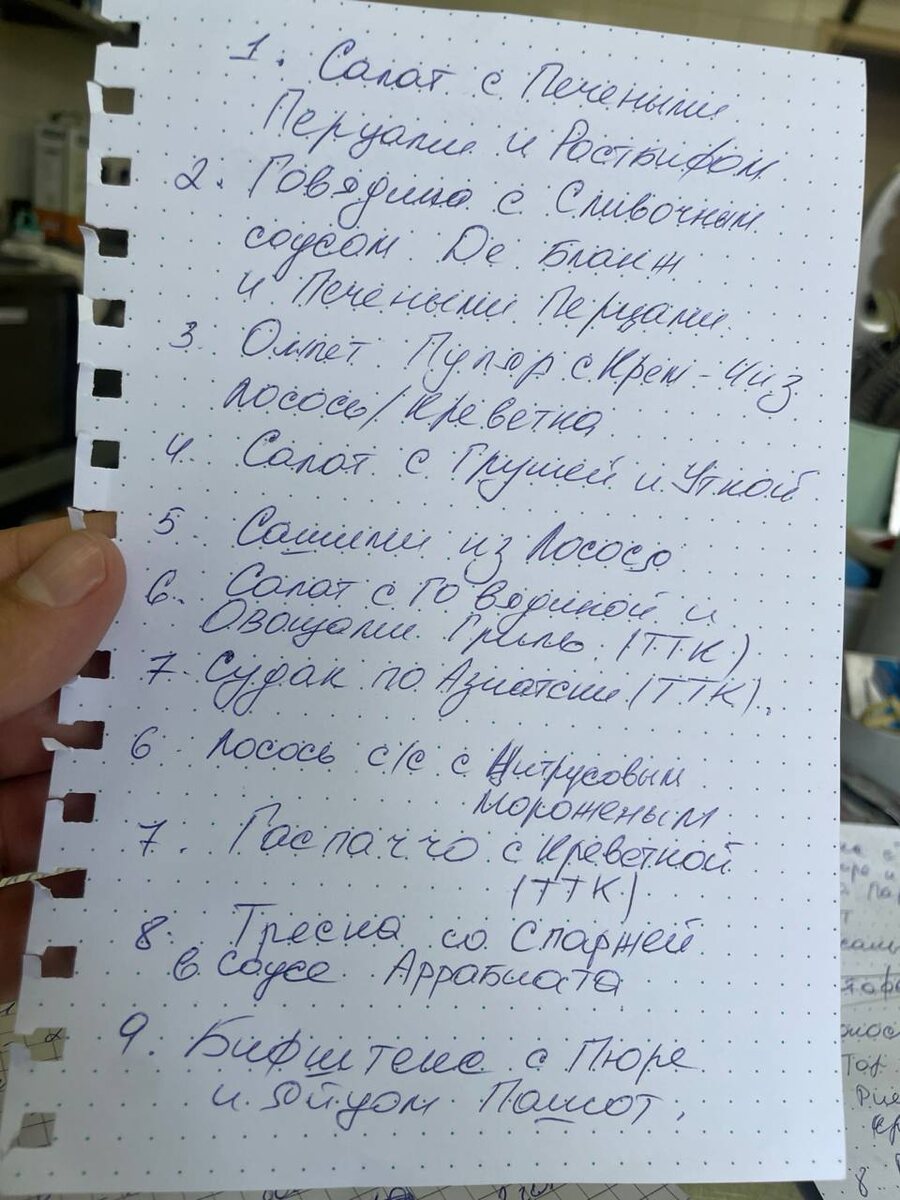 1. Салат с Печеными
Перцами и Ростбифом
2. Говядина с Сливочным
соусом Де Бланж
и Печеными Перцами
3. Омлет Пуляр с Крем-чиз
Лосось/Креветка
4. Салат с Грушей и Уткой
5. Сашими из Лосося
6. Салат с Говядиной и
Овощами Гриль (ТТК)
7. Судак по Азиатски (ТТК).
6. Лосось с/с с Цитрусовым
Мороженым
7. Гаспаччо с Креветкой
(ТТК)
8. Треска со Спаржей
в соусе Аррабиата
9. Бифштекс с Пюре
и Яйцом Пашот.
8.